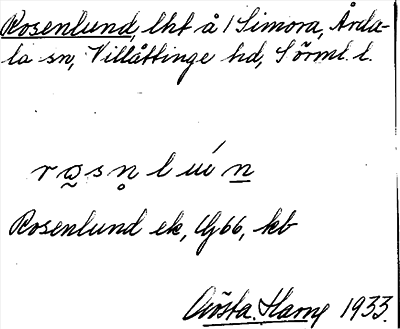 Rosenlund, lht å 1 Simora, Årda-
la sn, Villåttinge hd, Sörml. l.
Rosenlund ek, Gj66, kb
Gösta Harne 1933.